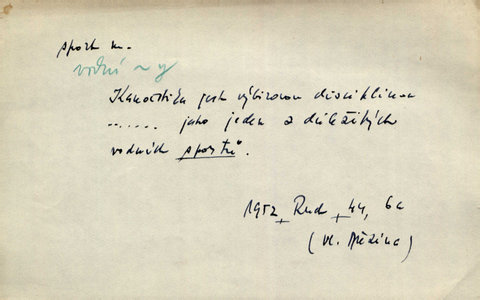 sport m.
vodní ~ y
Kanoistika jest výbirovou disciklinou
....... jako jeden z důležitých
vodních sportů.
1952, Rud, 44, 6a
(Vl. Mědina)